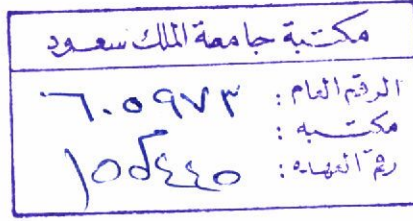 مكتبة جامعة الملك سعود
الرقم العام : ٦٠٥٩٧٣
مكتبه :
رقم العهده :